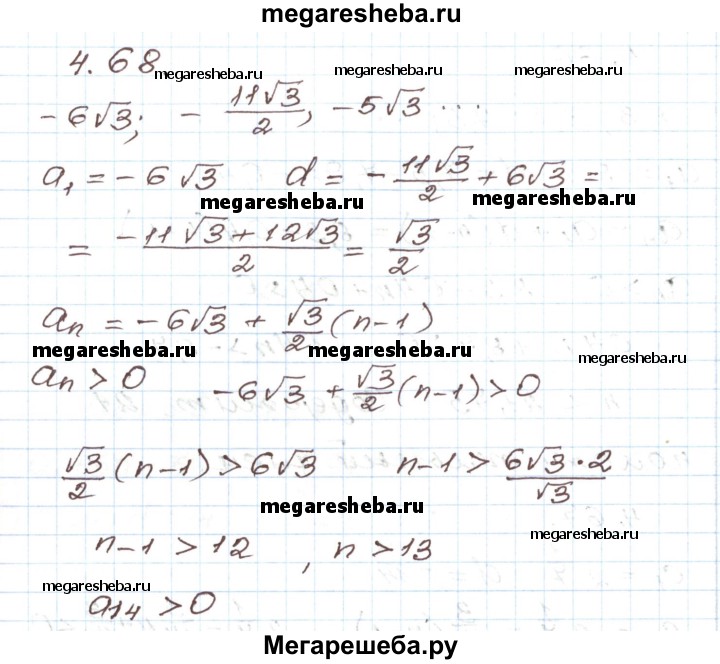 megaresheba.ru
4.68
megaresheba.ru megaresheba.ru megaresheba.ru
-6√3; - 11√3/2, -5√3 ...
megaresheba.ru
a₁ = -6√3 d = - 11√3/2 + 6√3 =
megaresheba.ru megaresheba.ru
= (-11√3 + 12√3)/2 = √3/2
aₙ = -6√3 + √3/2 (n-1)
megaresheba.ru megaresheba.ru megaresheba.ru
aₙ > 0 -6√3 + √3/2 (n-1) > 0
√3/2 (n-1) > 6√3 n-1 > (6√3 · 2)/√3
megaresheba.ru
megaresheba.ru
n-1 > 12, n > 13
megaresheba.ru
a₁₄ > 0
Мегарешеба.ру